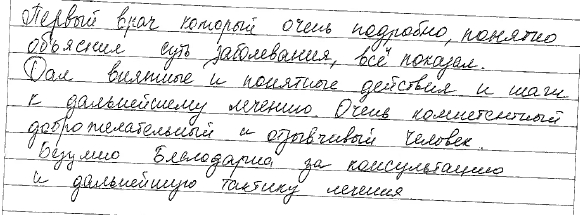 Первый врач который очень подробно, понятно
объяснил суть заболевания, всё показал.
Дал внятные и понятные действия и шаги
к дальнейшему лечению. Очень компетентный
доброжелательный и отзывчивый человек.
Безумно благодарна за консультацию
и дальнейшую тактику лечения